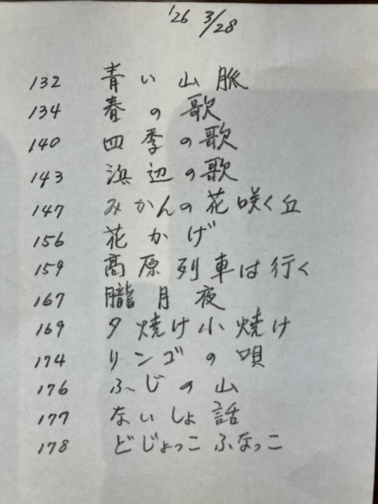 '26 3/28
132 青い山脈
134 春の歌
140 四季の歌
143 浜辺の歌
147 みかんの花咲く丘
156 花かげ
159 高原列車は行く
167 朧月夜
169 夕焼け小焼け
174 リンゴの唄
176 ふじの山
177 ないしょ話
178 どじょっこ ふなっこ